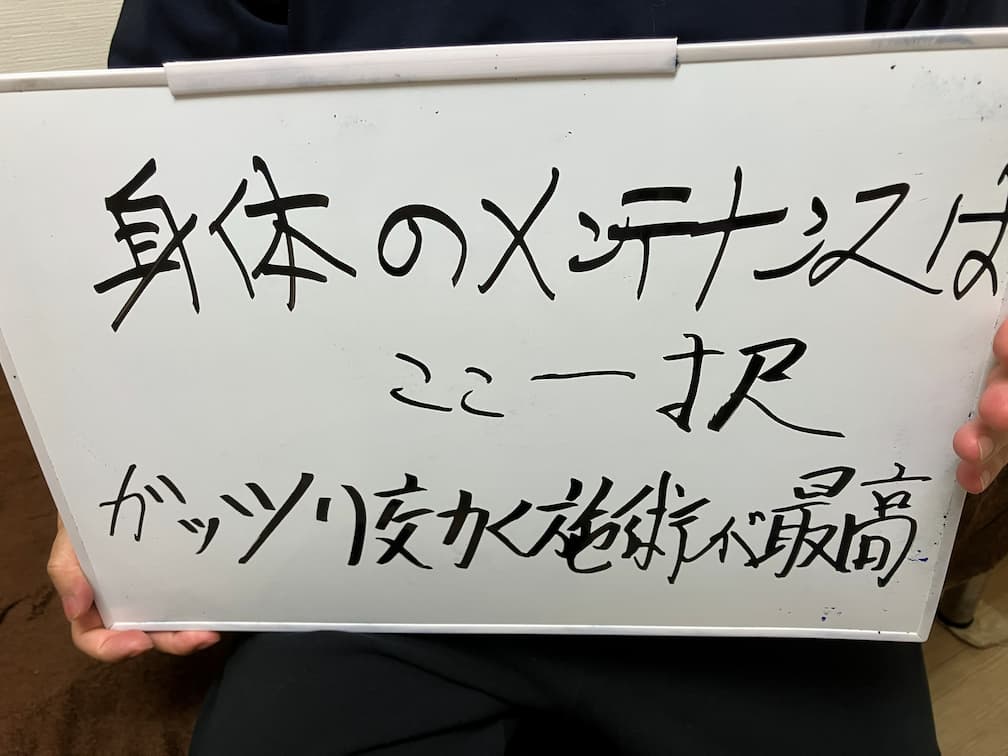 身体のメンテナンスは
ここ一択
ガッツリ効く施術が最高